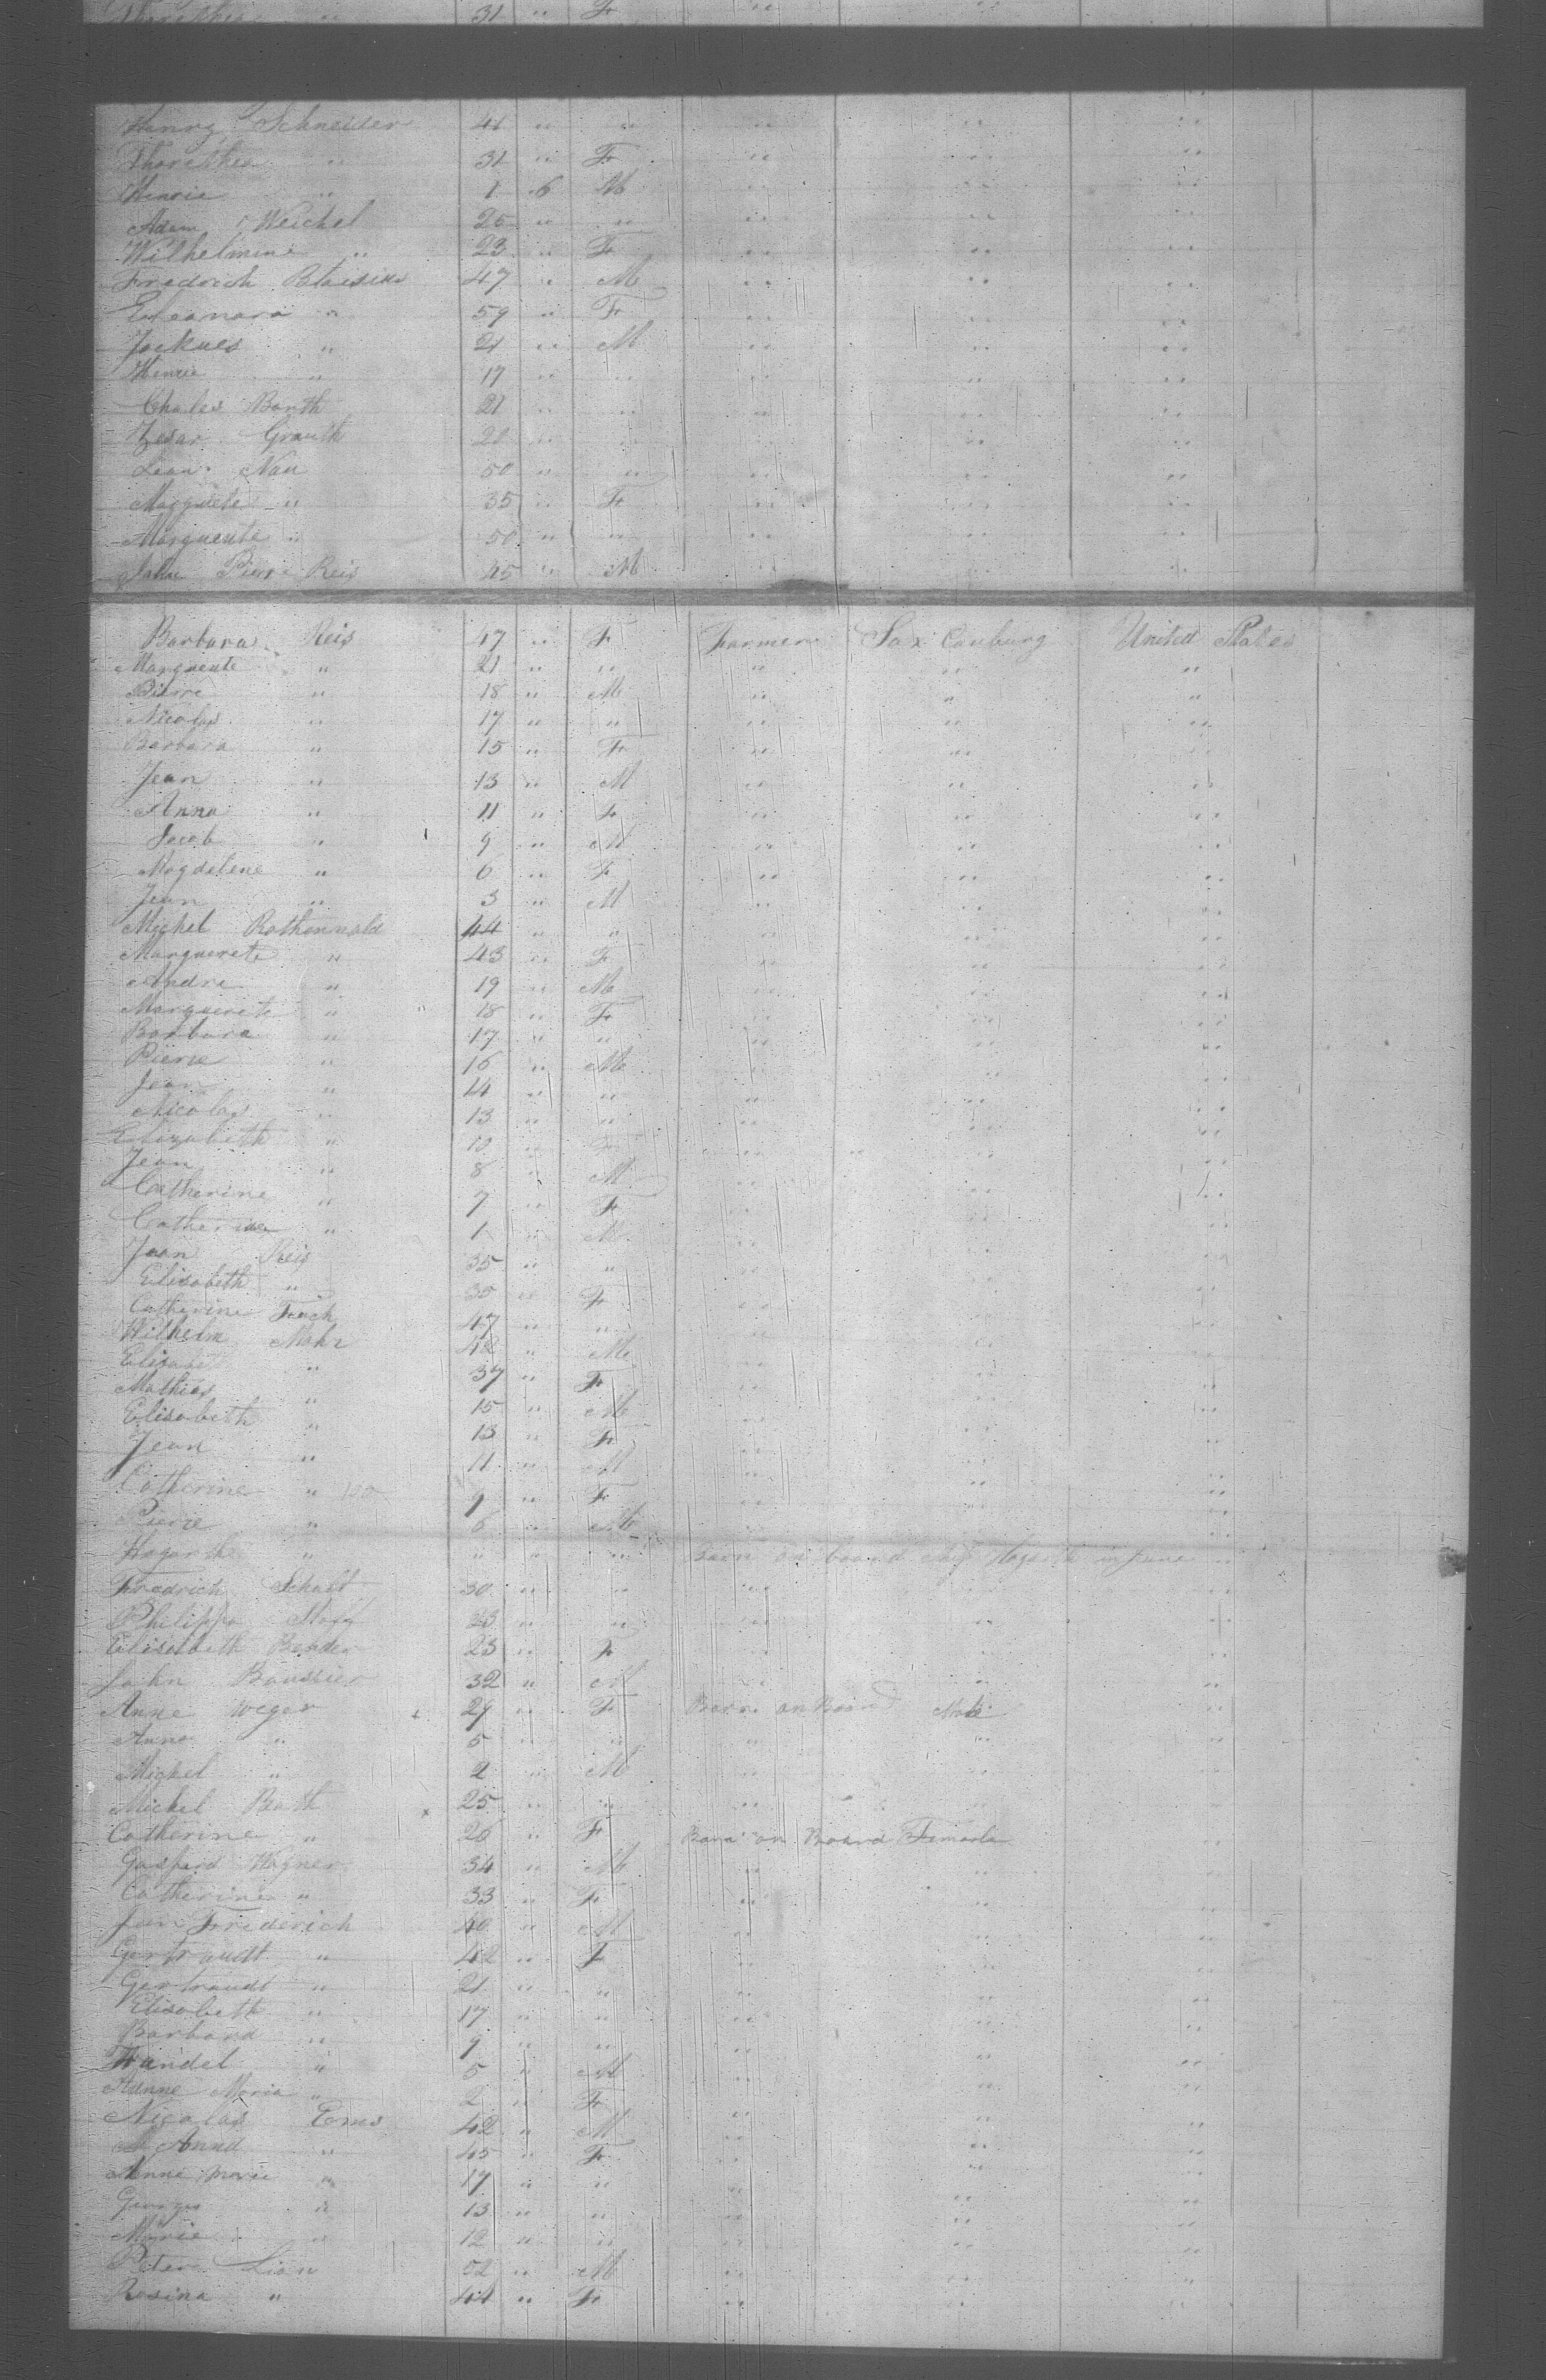 31 " F " " "
Henry Schneider 41 " " " " "
Thorethea " 31 " F " " "
Henrie " 1 6 M " " "
Adam Weichel 25 " " " " "
Wilhelmine " 23 " F " " "
Fredrich Blaesius 47 " M " " "
Eleanora " 59 " F " " "
Jackues " 21 " M " " "
Henrie " 17 " " " " "
Chales Barth 21 " " " " "
Zesar Grauth 20 " " " " "
Lean Nau 50 " " " " "
Marguete " 35 " F " " "
Marguente " 50 " " " " "
John Pierre Reis 45 " M " " "
Barbara Reis 47 " F Farmer Sax Couburg United States
Marguente " 21 " " " " "
Pierre " 18 " M " " "
Nicolas " 17 " " " " "
Barbara " 15 " F " " "
Jean " 13 " M " " "
Anna " 11 " F " " "
Jacob " 9 " M " " "
Magdelene " 6 " F " " "
Jean " 3 " M " " "
Michel Rothenwald 44 " " " " "
Marguerete " 43 " F " " "
Andre " 19 " M " " "
Marguerete " 18 " F " " "
Barbara " 17 " " " " "
Pierre " 16 " M " " "
Jean " 14 " " " " "
Nicolas " 13 " " " " "
Elizabeth " 10 " F " " "
Jean " 8 " M " " "
Catherine " 7 " F " " "
Catherine " 1 " M " " "
Jean Reis 35 " " " " "
Elisabeth " 35 " F " " "
Catherine 47 " " " " "
Wilhelm Mohr 42 " M " " "
Elisabeth " 37 " F " " "
Mathias " 15 " M " " "
Elisabeth " 13 " F " " "
Jean " 11 " M " " "
Catherine " 9 " F " " "
Pierre " 6 " M " " "
Hogarth " " " " Born on board Ship Hogarth in June "
Fredrich Schalt 30 " " " " "
Philippe 23 " " " " "
Elisabeth Bender 23 " F " " "
John Boussier 32 " M " " "
Anne Weger 29 " F Born on Board Male "
Anna " 5 " " " " "
Michel " 2 " M " " "
Michel Barth x 25 " " " " "
Catherine " 26 " F Born on Board Femaile "
Gaspard Wagner 34 " M " " "
Catherine " 33 " F " " "
Jean Friderich 40 " M " " "
Gertraudt " 42 " F " " "
Gertraudt " 21 " " " " "
Elisabeth " 17 " " " " "
Barbara " 9 " " " " "
Wandel " 5 " M " " "
Anne Maria " 2 " F " " "
Nicolas Ems 42 " M " " "
Anna " 45 " F " " "
Anne Marie " 17 " " " " "
Georges " 13 " " " " "
Marie " 12 " " " " "
Peter Lion 52 " M " " "
Rosina " 44 " F " " "